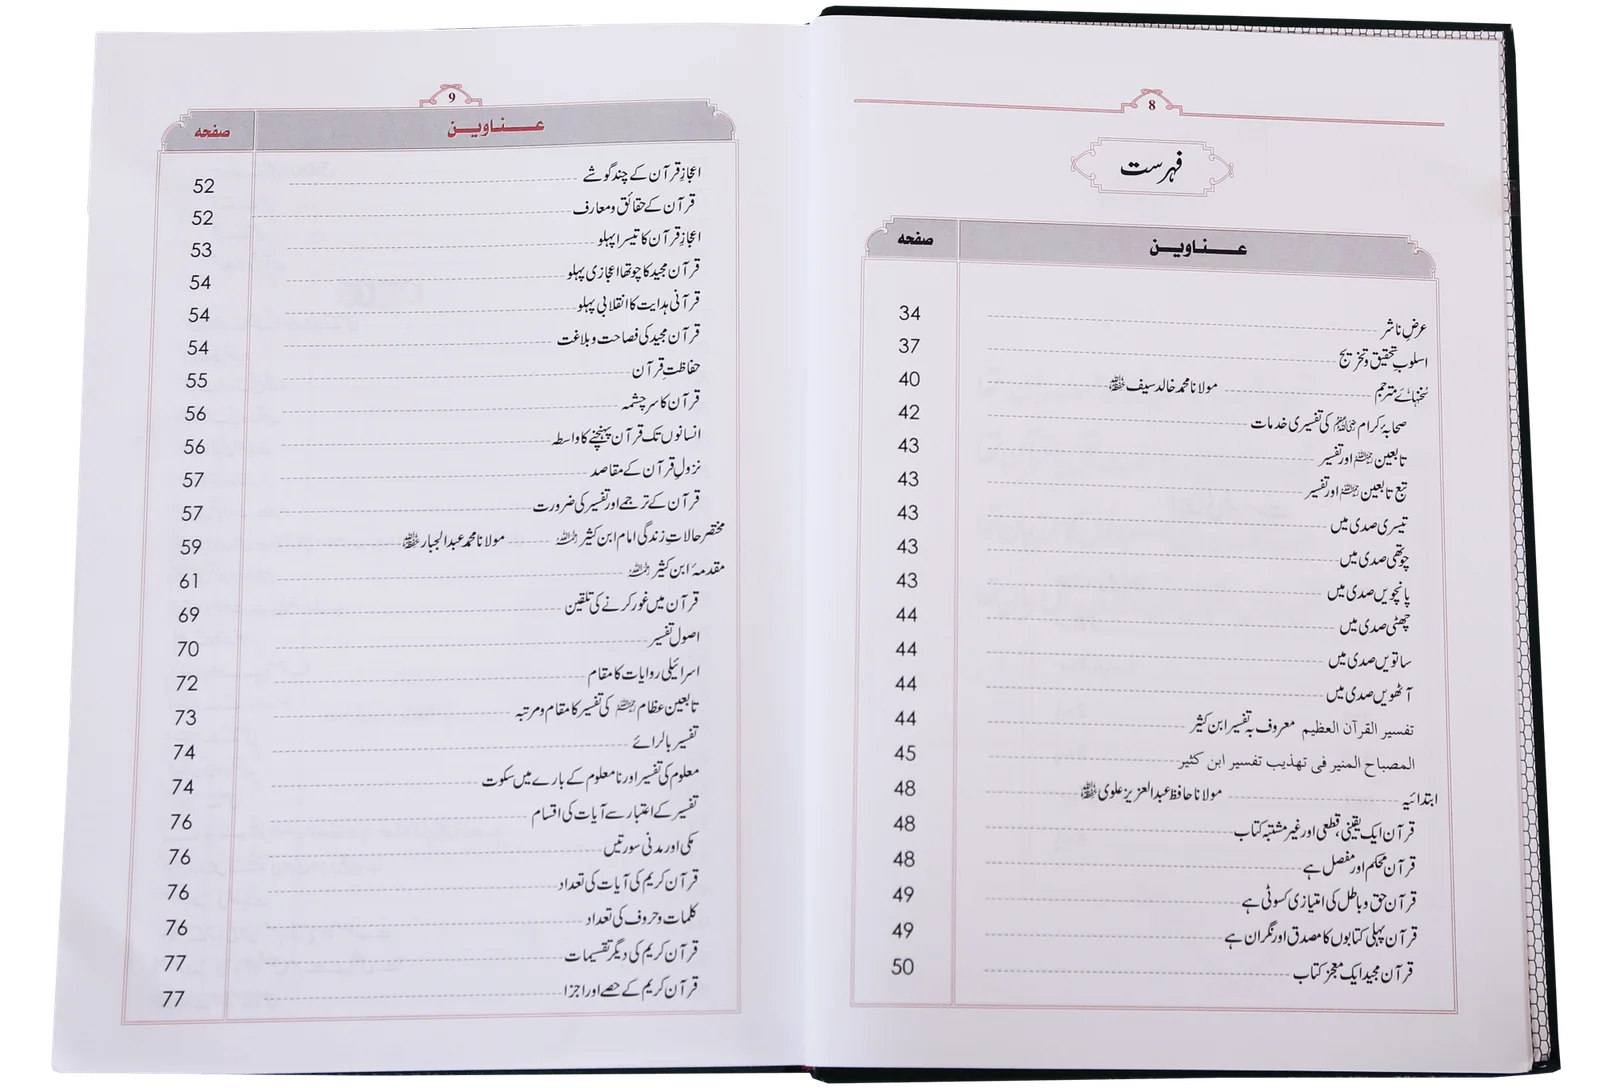 8
فہرست
عناوین صفحہ
عرضِ ناشر 34
اسلوبِ تحقیق و تخریج 37
سخنہائے مترجم مولانا محمد خالد سیف ﷾ 40
صحابۂ کرام ﷢ کی تفسیری خدمات 42
تابعین ﷭ اور تفسیر 43
تبع تابعین ﷭ اور تفسیر 43
تیسری صدی میں 43
چوتھی صدی میں 43
پانچویں صدی میں 43
چھٹی صدی میں 44
ساتویں صدی میں 44
آٹھویں صدی میں 44
تفسیر القرآن العظیم معروف بہ تفسیر ابن کثیر 44
المصباح المنیر فی تهذیب تفسیر ابن کثیر 45
ابتدائیہ مولانا حافظ عبدالعزیز علوی ﷾ 48
قرآن ایک یقینی، قطعی اور غیر مشتبہ کتاب 48
قرآن محکم اور مفصل ہے 48
قرآن حق و باطل کی امتیازی کسوٹی ہے 49
قرآن پہلی کتابوں کا مصدق اور نگران ہے 49
قرآن مجید ایک معجز کتاب 50
9
عناوین صفحہ
اعجازِ قرآن کے چند گوشے 52
قرآن کے حقائق و معارف 52
اعجازِ قرآن کا تیسرا پہلو 53
قرآن مجید کا چوتھا اعجازی پہلو 54
قرآنی ہدایت کا انقلابی پہلو 54
قرآن مجید کی فصاحت و بلاغت 54
حفاظتِ قرآن 55
قرآن کا سرچشمہ 56
انسانوں تک قرآن پہنچنے کا واسطہ 56
نزولِ قرآن کے مقاصد 57
قرآن کے ترجمے اور تفسیر کی ضرورت 57
مختصر حالاتِ زندگی امام ابن کثیر ﷫ مولانا محمد عبدالجبار ﷾ 59
مقدمۂ ابن کثیر ﷫ 61
قرآن میں غور کرنے کی تلقین 69
اصول تفسیر 70
اسرائیلی روایات کا مقام 72
تابعین عظام ﷭ کی تفسیر کا مقام و مرتبہ 73
تفسیر بالرائے 74
معلوم کی تفسیر اور نامعلوم کے بارے میں سکوت 74
تفسیر کے اعتبار سے آیات کی اقسام 76
مکی اور مدنی سورتیں 76
قرآن کریم کی آیات کی تعداد 76
کلمات و حروف کی تعداد 76
قرآن کریم کی دیگر تقسیمات 77
قرآن کریم کے حصے اور اجزا 77